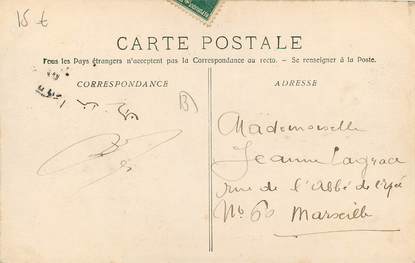 15 €
CARTE POSTALE
Tous les Pays étrangers n'acceptent pas la Correspondance au recto. — Se renseigner à la Poste.
CORRESPONDANCE
ADRESSE
B
Mademoiselle
Jeanne
rue de l'Abbé de l'épé
No 60 Marseille